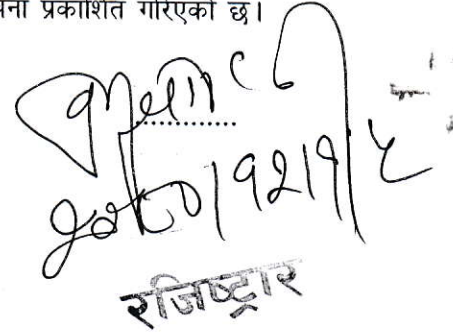 प्रकाशित गरिएको छ।
२०८०।१२।१५
रजिष्ट्रार